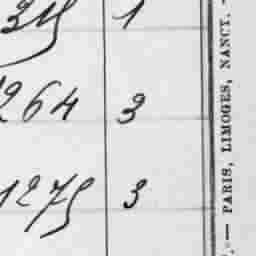 1
264 3
1275 3
— PARIS, LIMOGES, NANCY. -